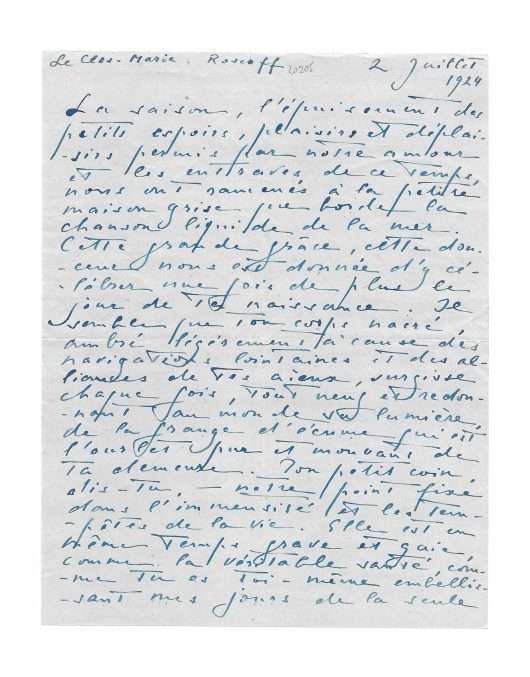 Le Clos-Marie. Roscoff 20206 2 Juillet
1924
La saison, l'épuisement des
petits espoirs, plaisirs et déplai-
-sirs permis par notre amour
et les entraves de ce temps,
nous ont ramenés à la petite
maison grise que borde la
chanson liquide de la mer.
Cette grande grâce, cette dou-
-ceur nous est donnée d'y cé-
-lébrer une fois de plus le
jour de ta naissance. Il
semble que ton corps nacré,
ambré légèrement à cause des
navigations lointaines et des al-
liances de tes aïeux, surgisse
chaque fois, tout neuf et redon-
-nant au monde sa lumière,
de la frange d'écume qui est
l'ourlet pur et mouvant de
ta demeure. Ton petit coin,
dis-tu, — notre point fixe
dans l'immensité et les tem-
-pêtes de la vie. Elle est en
même temps grave et gaie,
comme la véritable santé, com-
-me tu es toi-même embellis-
-sant mes jours de la seule